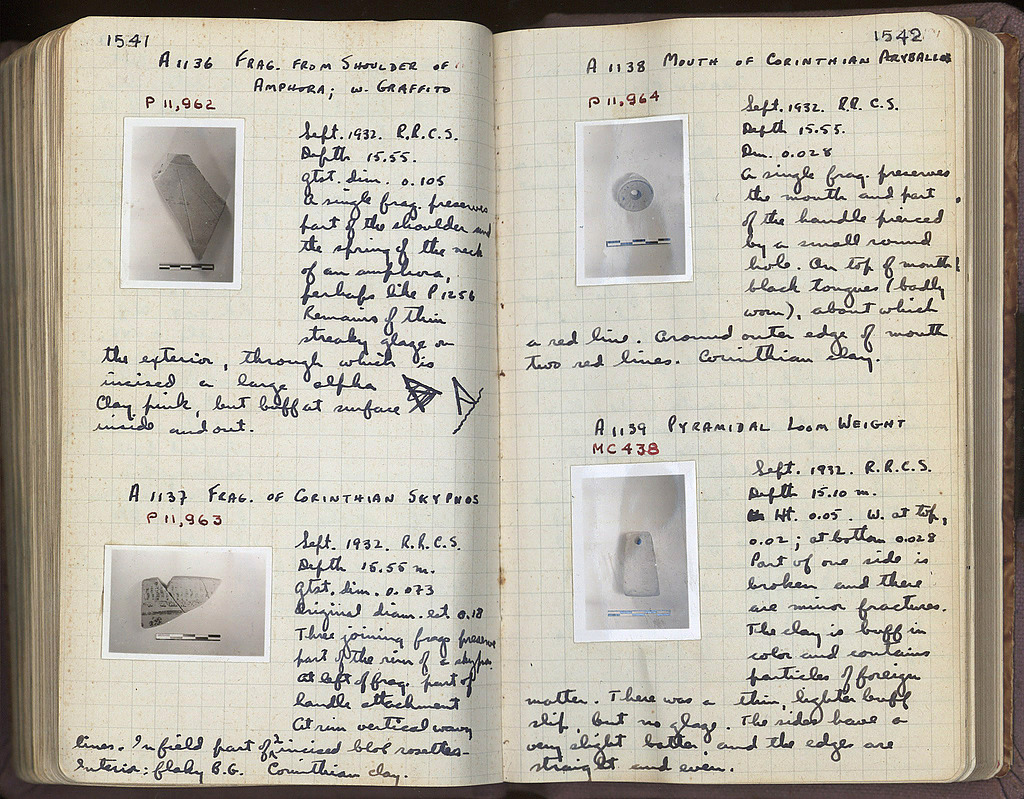 1541
A 1136 FRAG. FROM SHOULDER OF
AMPHORA; W. GRAFFITO
P 11,962
Sept. 1932. R.R.C.S.
Depth 15.55.
gtst. dim. 0.105
A single frag. preserves
part of the shoulder and
the spring of the neck
of an amphora,
perhaps like P 1256
Remains of thin
streaky glaze on
the exterior, through which is
incised a large alpha
Clay pink, but buff at surface
inside and out.
A 1137 FRAG. OF CORINTHIAN SKYPHOS
P 11,963
Sept. 1932. R.R.C.S.
Depth 15.55 m.
Gtst. dim. 0.073
Original diam. est. 0.18
Three joining frags preserve
part of the rim of a skyphos
At left of frag. part of
handle attachment
At rim vertical wavy
lines. In field part of 2 incised blob rosettes-
Interior: flaky B.G. Corinthian clay.
1542
A 1138 MOUTH OF CORINTHIAN ARYBALLOS
P 11,964
Sept. 1932. R.R.C.S.
Depth 15.55.
Dm. 0.028
A single frag. preserves
the mouth and part
of the handle pierced
by a small round
hole. On top of mouth
black tongues (badly
worn), about which
a red line. Around outer edge of mouth
two red lines. Corinthian clay.
A 1139 PYRAMIDAL LOOM WEIGHT
MC 438
Sept. 1932. R.R.C.S.
Depth 15.10 m.
Ht. 0.05. W. at top,
0.02; at bottom 0.028
Part of one side is
broken and there
are minor fractures.
The clay is buff in
color and contains
particles of foreign
matter. There was a thin, lighter buff
slip, but no glaze. The sides have a
very slight batter and the edges are
straight and even.